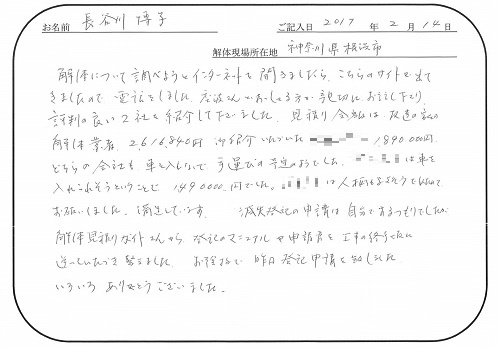 お名前 長谷川 博子 ご記入日 2017 年 2 月 14 日
解体現場所在地 神奈川県横浜市
解体について調べようとインターネットを開きましたら、こちらのサイトが出て
きましたので 電話をしました。 さんとおっしゃる方が親切にお話し下さり
評判の良い2社を紹介して下さいました。見積り金額は 友達の
解体業者 2616840円 御紹介いただいた 1890000円
どちらの会社も車を入れないで手運びの予定のようでした。 は車を
入れられそうということで 1490000円でした。 は人柄も
お願いしました。満足しています。 滅失登記の申請は自分でするつもりでしたが
解体見積りガイドさんから 登記のマニュアルや申請書を工事の終る
送っていただき 助かりました。 お陰さまで 昨日 登記申請を
いろいろ ありがとうございました。